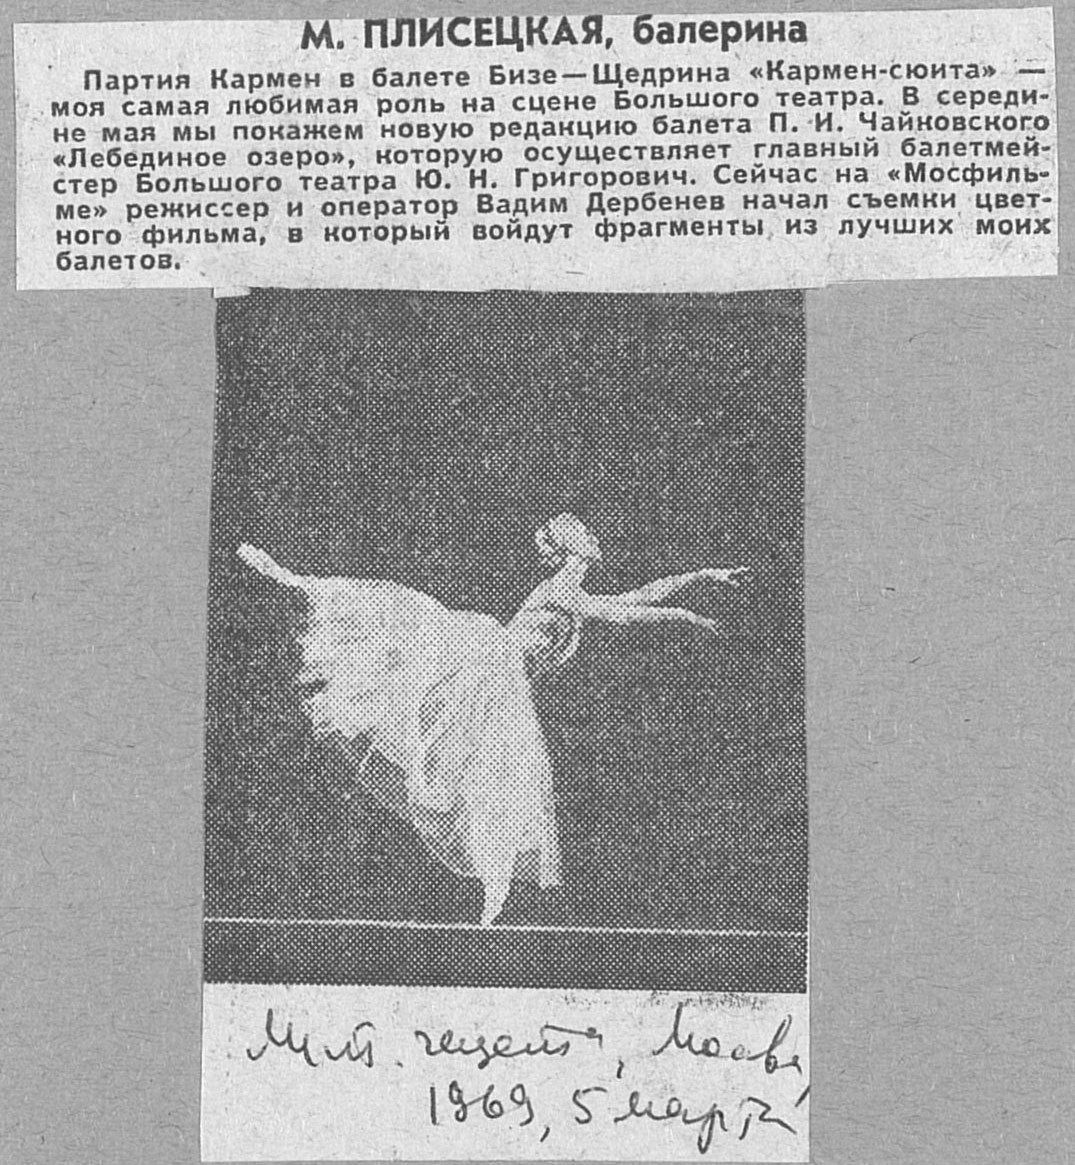 М. ПЛИСЕЦКАЯ, балерина
Партия Кармен в балете Бизе—Щедрина «Кармен-сюита» —
моя самая любимая роль на сцене Большого театра. В середи-
не мая мы покажем новую редакцию балета П. И. Чайковского
«Лебединое озеро», которую осуществляет главный балетмей-
стер Большого театра Ю. Н. Григорович. Сейчас на «Мосфиль-
ме» режиссер и оператор Вадим Дербенев начал съемки цвет-
ного фильма, в который войдут фрагменты из лучших моих
балетов.
Лит. газета, Москва,
1969, 5 марта